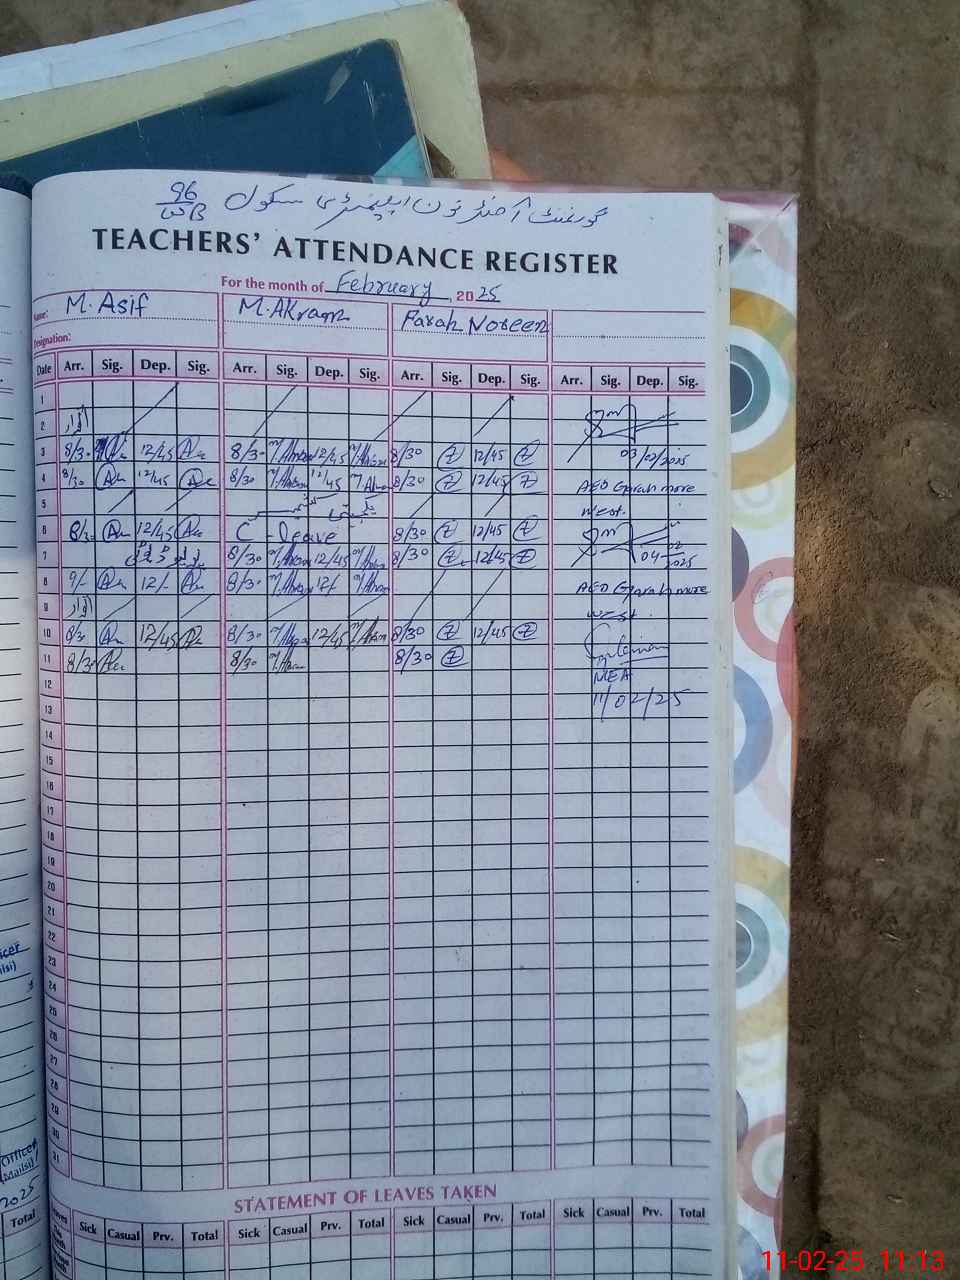 گورنمنٹ آفٹر نون ایلیمنٹری سکول 96/WB
TEACHERS' ATTENDANCE REGISTER
For the month of February, 2025
Name: M. Asif M. Akram Farah Noreen
Designation:
Date Arr. Sig. Dep. Sig. Arr. Sig. Dep. Sig. Arr. Sig. Dep. Sig. Arr. Sig. Dep. Sig.
1
2 اتوار
3 8/30 12/45 8/30 M.Akram 12/45 M.Akram 8/30 12/45 03/02/2025
4 8/30 12/45 8/30 M.Akram 12/45 M.Akram 8/30 12/45 AEO Garah more
5 یکجہتی کشمیر West.
6 8/30 12/45 C-leave 8/30 12/45
7 8/30 M.Akram 12/45 M.Akram 8/30 12/45 04-02-2025
8 9/- 12/- 8/30 M.Akram 12/- M.Akram AEO Garah more
9 اتوار West.
10 8/30 12/45 8/30 M.Akram 12/45 M.Akram 8/30 12/45
11 8/30 8/30 M.Akram 8/30 MEA
12 11/02/25
13
14
15
16
17
18
19
20
21
22
23
24
25
26
27
28
29
30
31
STATEMENT OF LEAVES TAKEN
Leaves Sick Casual Prv. Total Sick Casual Prv. Total Sick Casual Prv. Total Sick Casual Prv. Total
Officer
(Mailsi)
2025
Total
11-02-25 11:13